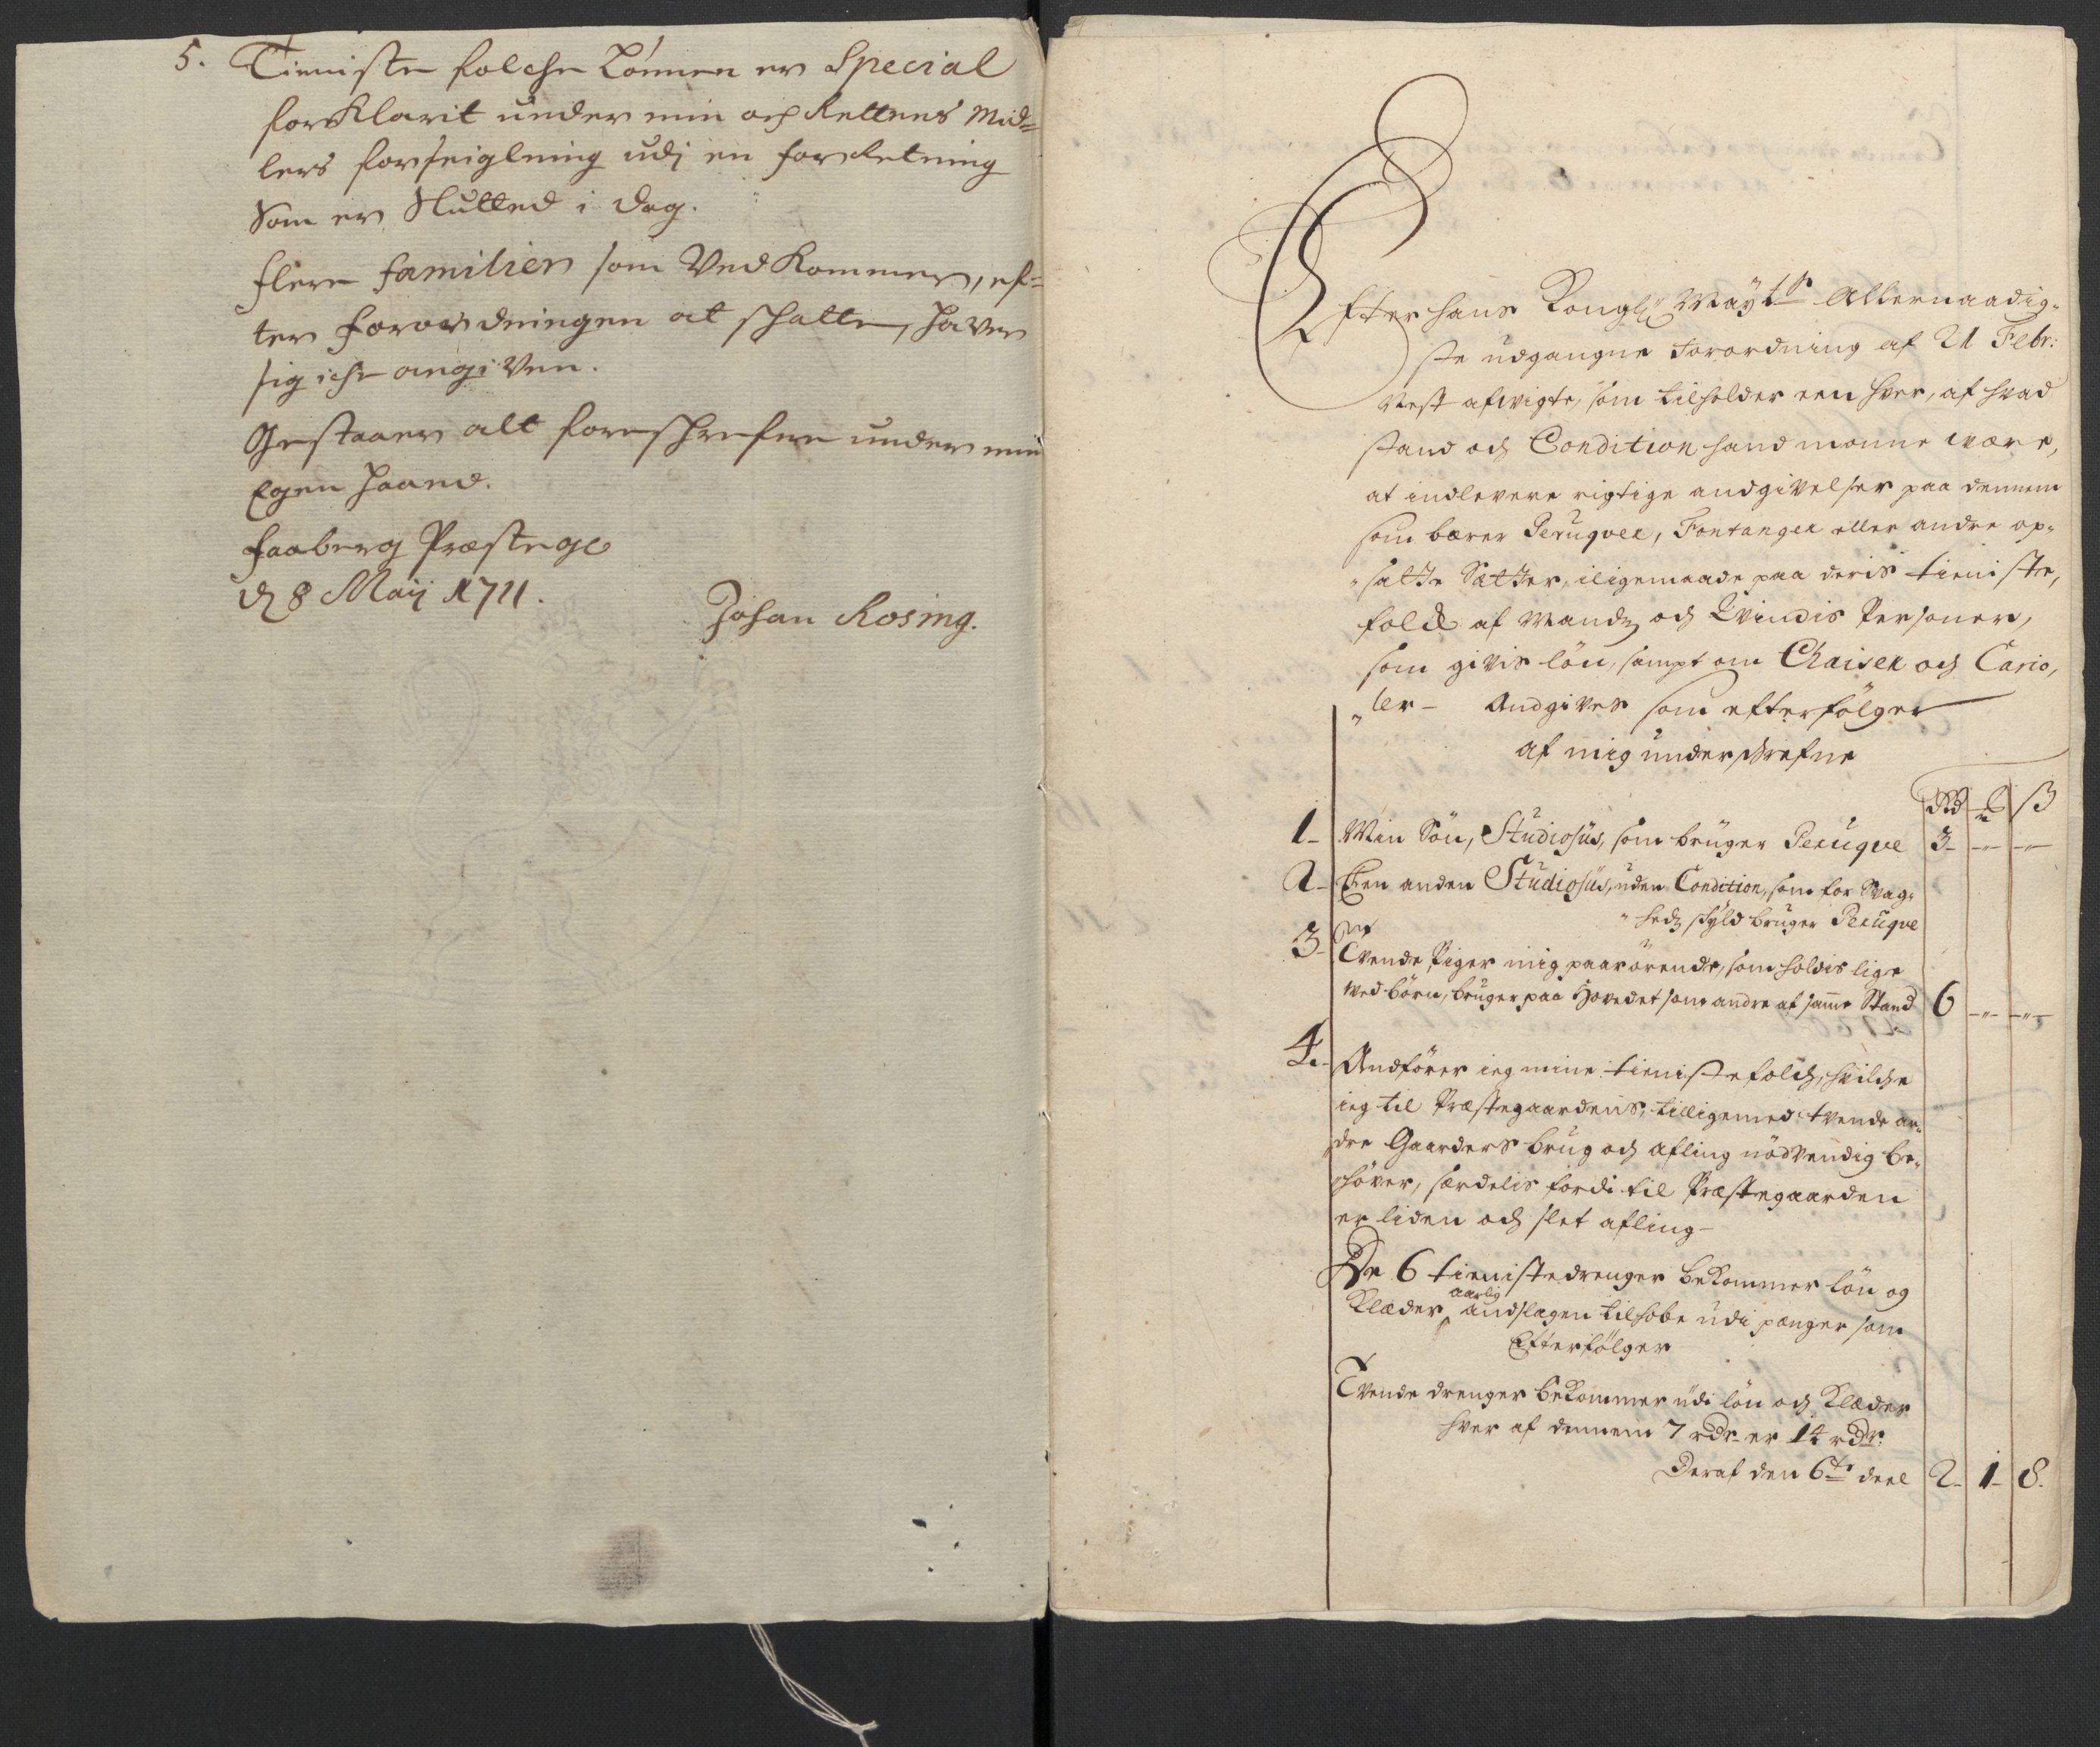 5. Tieniste folche Lönnen er Special
forKlarit under min och Rettens Mid=
lers forseigling udj en forRetning
Som er Slutted i dag.
flere familier som VedKommer, ef=
ter forordningen at schatte, haver
sig iche angiven.
Gestaaer alt foreschrefne under min
Egen haand.
Faaberg Præstege
d 8 Maij 1711.
Johan Rosing.
Efter hans Kongl: Mayts Allernaadig-
ste udgangne Forordning af 21 Febr:
nest afvigte, som tilholder een hver, af hvad
stand och Condition hand monne være,
at indlevere rigtige andgivelser paa dennem
som bærer Peruqver, Fontanger eller andre op-
satte Sætter, iligemaade paa deris tieniste,
folck af Mands och Qvindis Personer,
som givis lön, sampt om Chaiser och Cario,
ler - Andgives som efterfölger
af mig underschrefne
Rd ß
1- Min Sön, Studiosus, som bruger Peruqve 3- -"- -"-
2- Een anden Studiosus, uden Condition, som for Svag-
heds skyld bruger Peruqve
3- Tvende Piger mig paarörende, som holdis lige
ved börn, bruger paa Hovedet som andre af samme Stand 6 -"- -"-
4. Andförer ieg mine tienistefolch, hvilche
ieg til Præstegaardens, tilligemed tvende an-
dre Gaarders brug och afling nödvendig be-
höver, særdelis fordi til Præstegaarden
er liden och slet afling-
De 6 tienistedrenger beKommer lön og
Klæder aarlig andslagen tilhobe udi penger som
Efterfölger
Tvende drenger beKommer udi lön och Klæder
hver af dennem 7 rdr er 14 rdr:
Deraf den 6te deel 2- 1- 8.